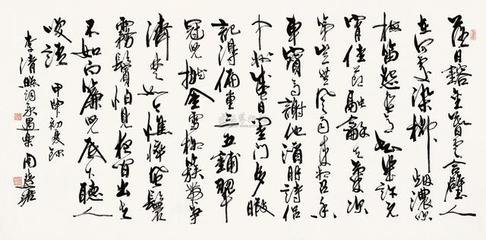 落日鎔金暮雲合璧人
在何處染柳烟濃吹
梅笛怨春意知幾許元
宵佳節融和天氣次
第豈無風雨來相召香
車寶馬謝他酒朋詩侶
中州盛日閨門多暇
記得偏重三五鋪翠
冠兒撚金雪柳簇帶爭
濟楚如今憔悴風鬟
霧鬢怕見夜間出去
不如向簾兒底下聽人
笑語 甲申初夏
李清照詞永遇樂 周